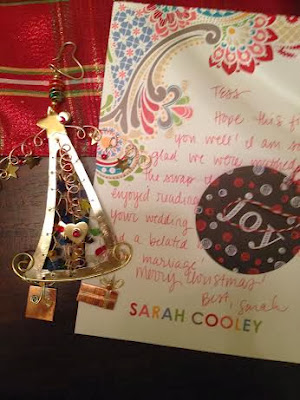 Tess,
Hope this f
you well! I am so
glad we were
the swap
enjoyed reading
your wedding
a belated
marriage!
Merry Christmas!
Best,
Sarah
joy
SARAH COOLEY